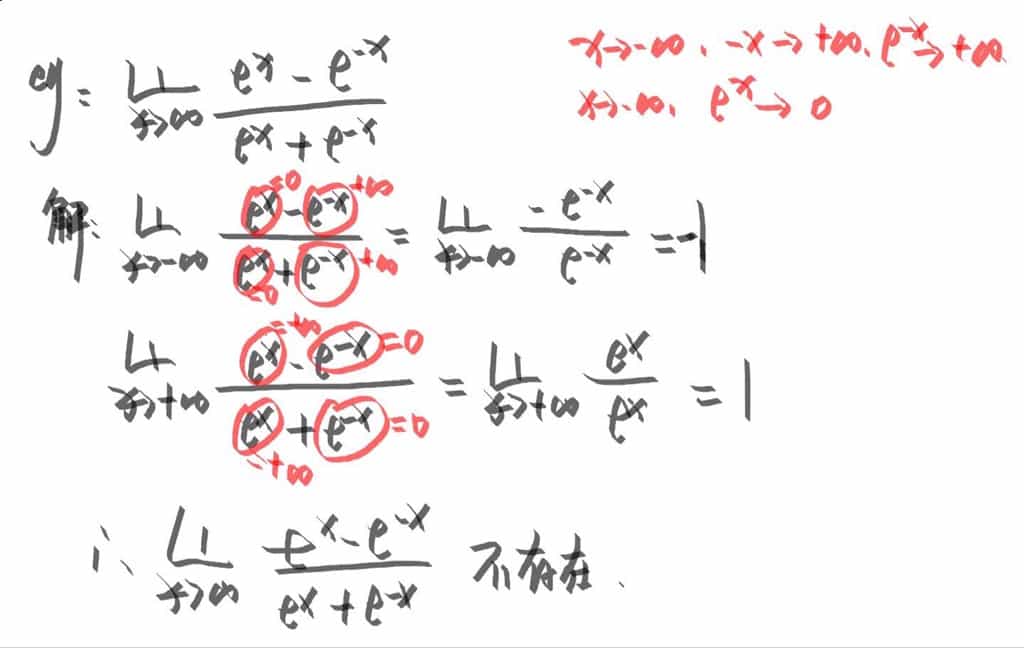 eg: lim x→∞ (e^x - e^-x)/(e^x + e^-x)
x→-∞, -x→+∞, e^-x→+∞
x→-∞, e^x→0
解: lim x→-∞ (e^x - e^-x)/(e^x + e^-x) = lim x→-∞ (-e^-x)/(e^-x) = -1
=0 +∞
=0 +∞
lim x→+∞ (e^x - e^-x)/(e^x + e^-x) = lim x→+∞ e^x/e^x = 1
=+∞ =0
=+∞ =0
∴ lim x→∞ (e^x - e^-x)/(e^x + e^-x) 不存在.